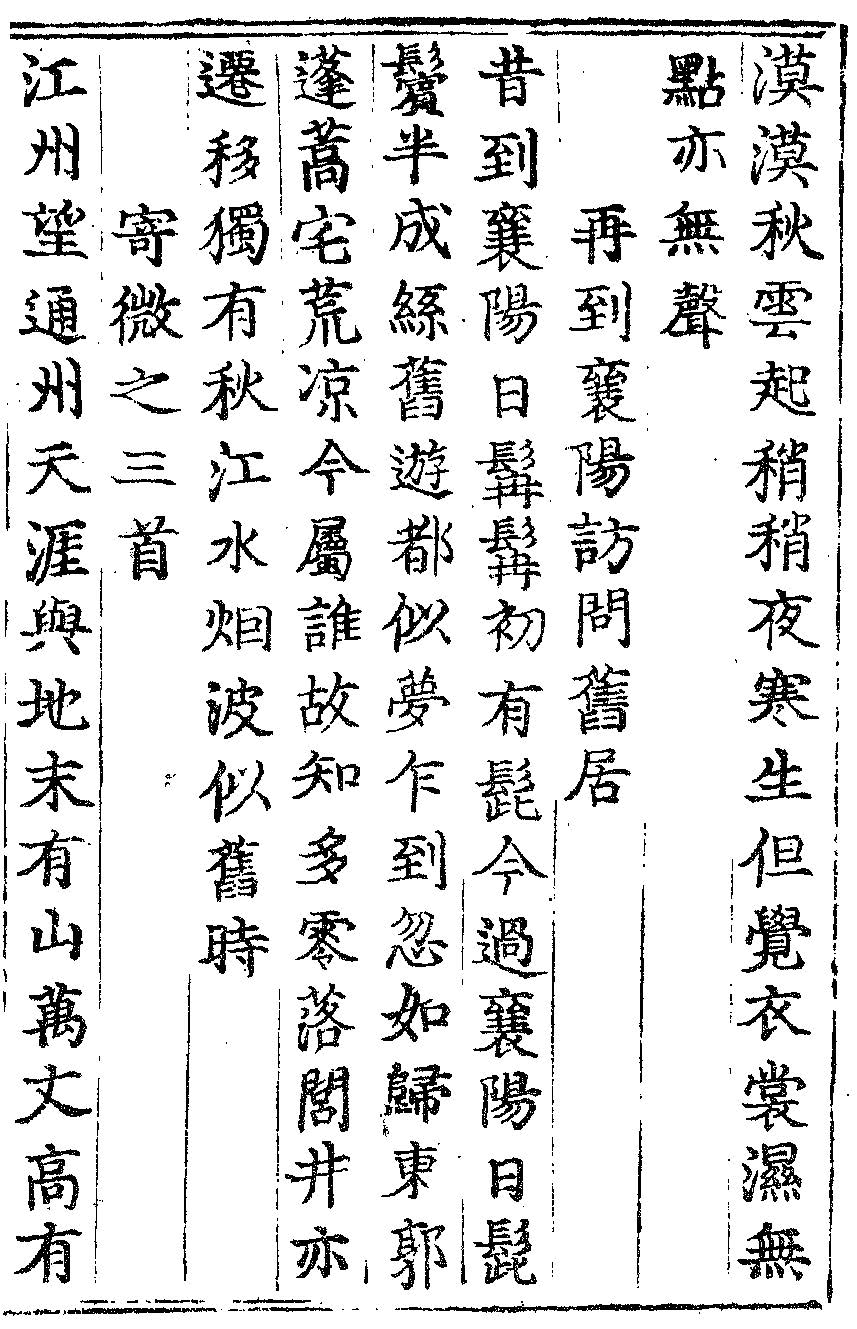 漠漠秋雲起稍稍夜寒生但覺衣裳濕無
點亦無聲
再到襄陽訪問舊居
昔到襄陽日髯髯初有髭今過襄陽日髭
鬢半成絲舊遊都似夢乍到忽如歸東郭
蓬蒿宅荒凉今屬誰故知多零落閭井亦
遷移獨有秋江水烟波似舊時
寄微之三首
江州望通州天涯與地末有山萬丈高有